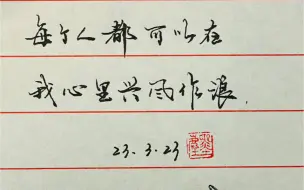 每个人都可以在
我心里兴风作浪.
23.3.23